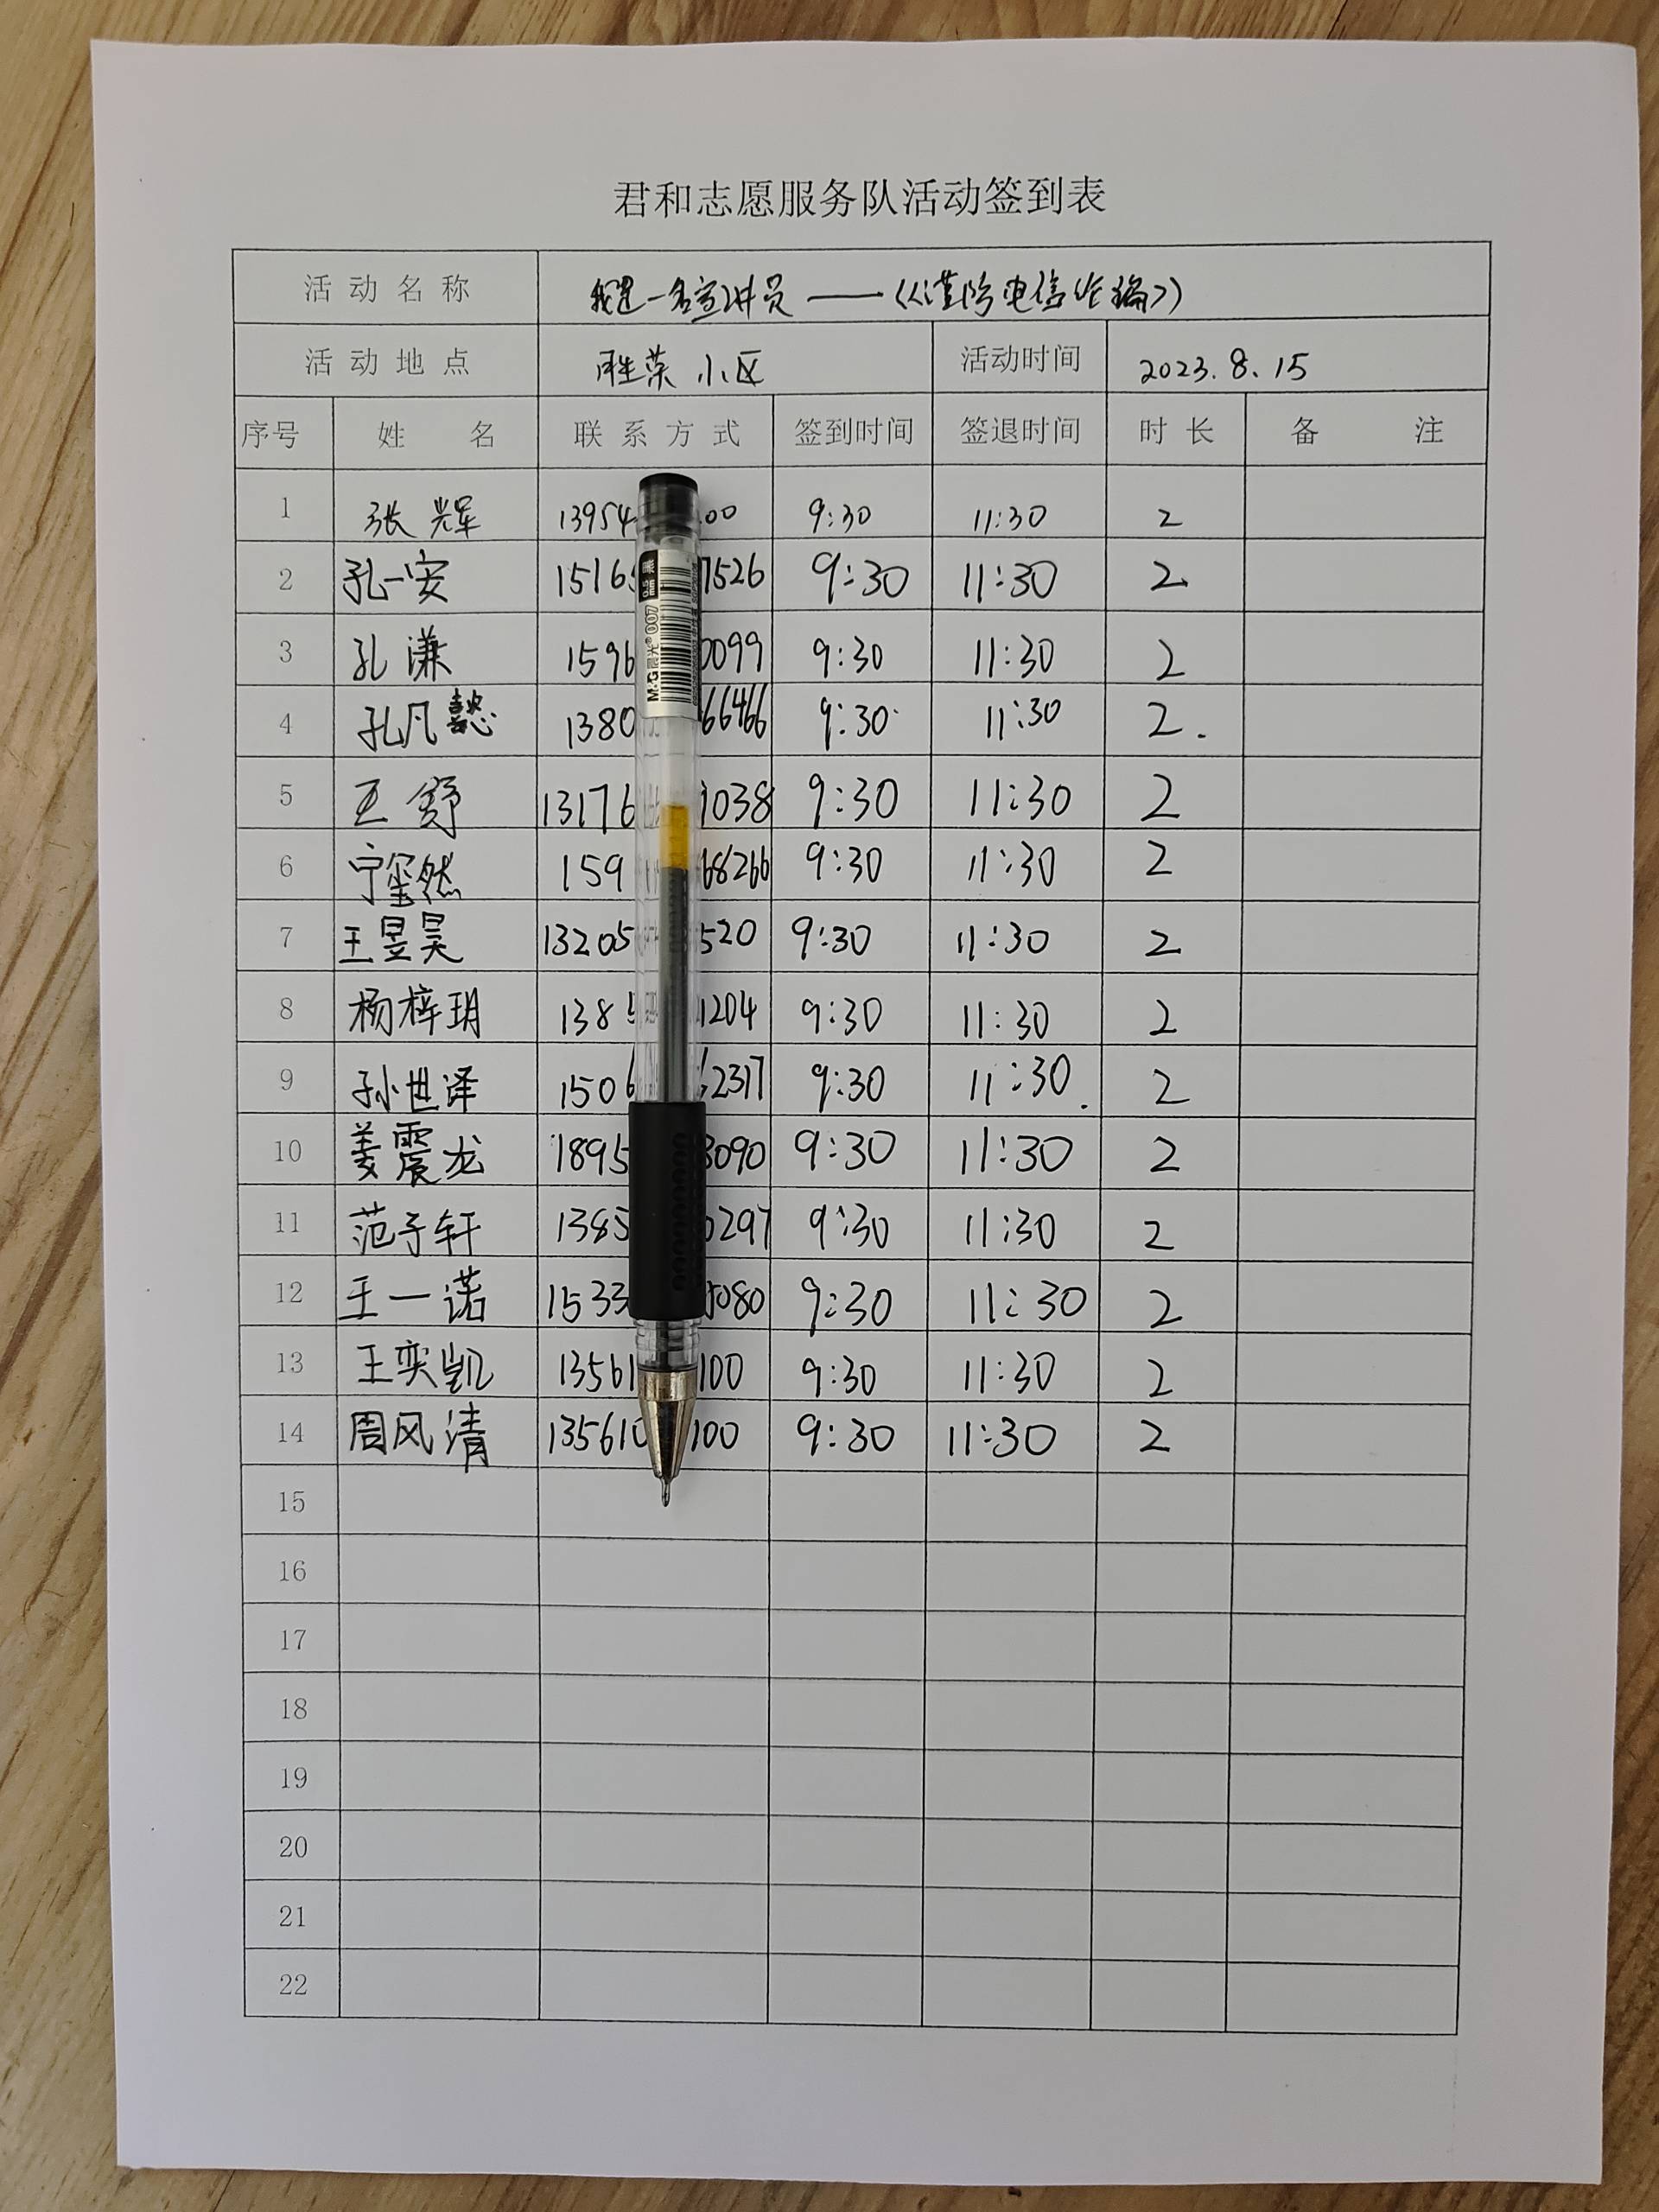 君和志愿服务队活动签到表
活动名称 我是一名宣讲员——《谨防电信诈骗》
活动地点 胜荣小区 活动时间 2023.8.15
序号 姓名 联系方式 签到时间 签退时间 时长 备注
1 张辉 13954 00 9:30 11:30 2
2 孔一安 1516 7526 9:30 11:30 2
3 孔谦 1596 0099 9:30 11:30 2
4 孔凡懿 1380 66466 9:30 11:30 2.
5 王舒 13176 1038 9:30 11:30 2
6 宁玺然 159 68266 9:30 11:30 2
7 王昱昊 13205 520 9:30 11:30 2
8 杨梓玥 1385 1204 9:30 11:30 2
9 孙世泽 1506 2317 9:30 11:30. 2
10 姜震龙 1895 3090 9:30 11:30 2
11 范子轩 1385 0297 9:30 11:30 2
12 王一诺 1533 5080 9:30 11:30 2
13 王奕凯 13561 100 9:30 11:30 2
14 周风清 135610 100 9:30 11:30 2
15
16
17
18
19
20
21
22
M&G 晨光® 007